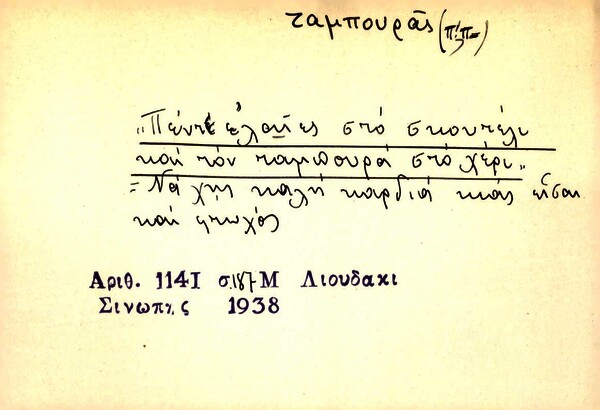 ταμπουρᾶς
„Πέντε ἐλαῖες στό σκουτέλι
καί τόν ταμπουρά στό χέρι„
= Νά χῃς καλή καρδιά κι ἄς εἶσαι
καί φτωχός
Αριθ. 1141 σ. 187 Μ Λιουδακι
Σινωπης 1938